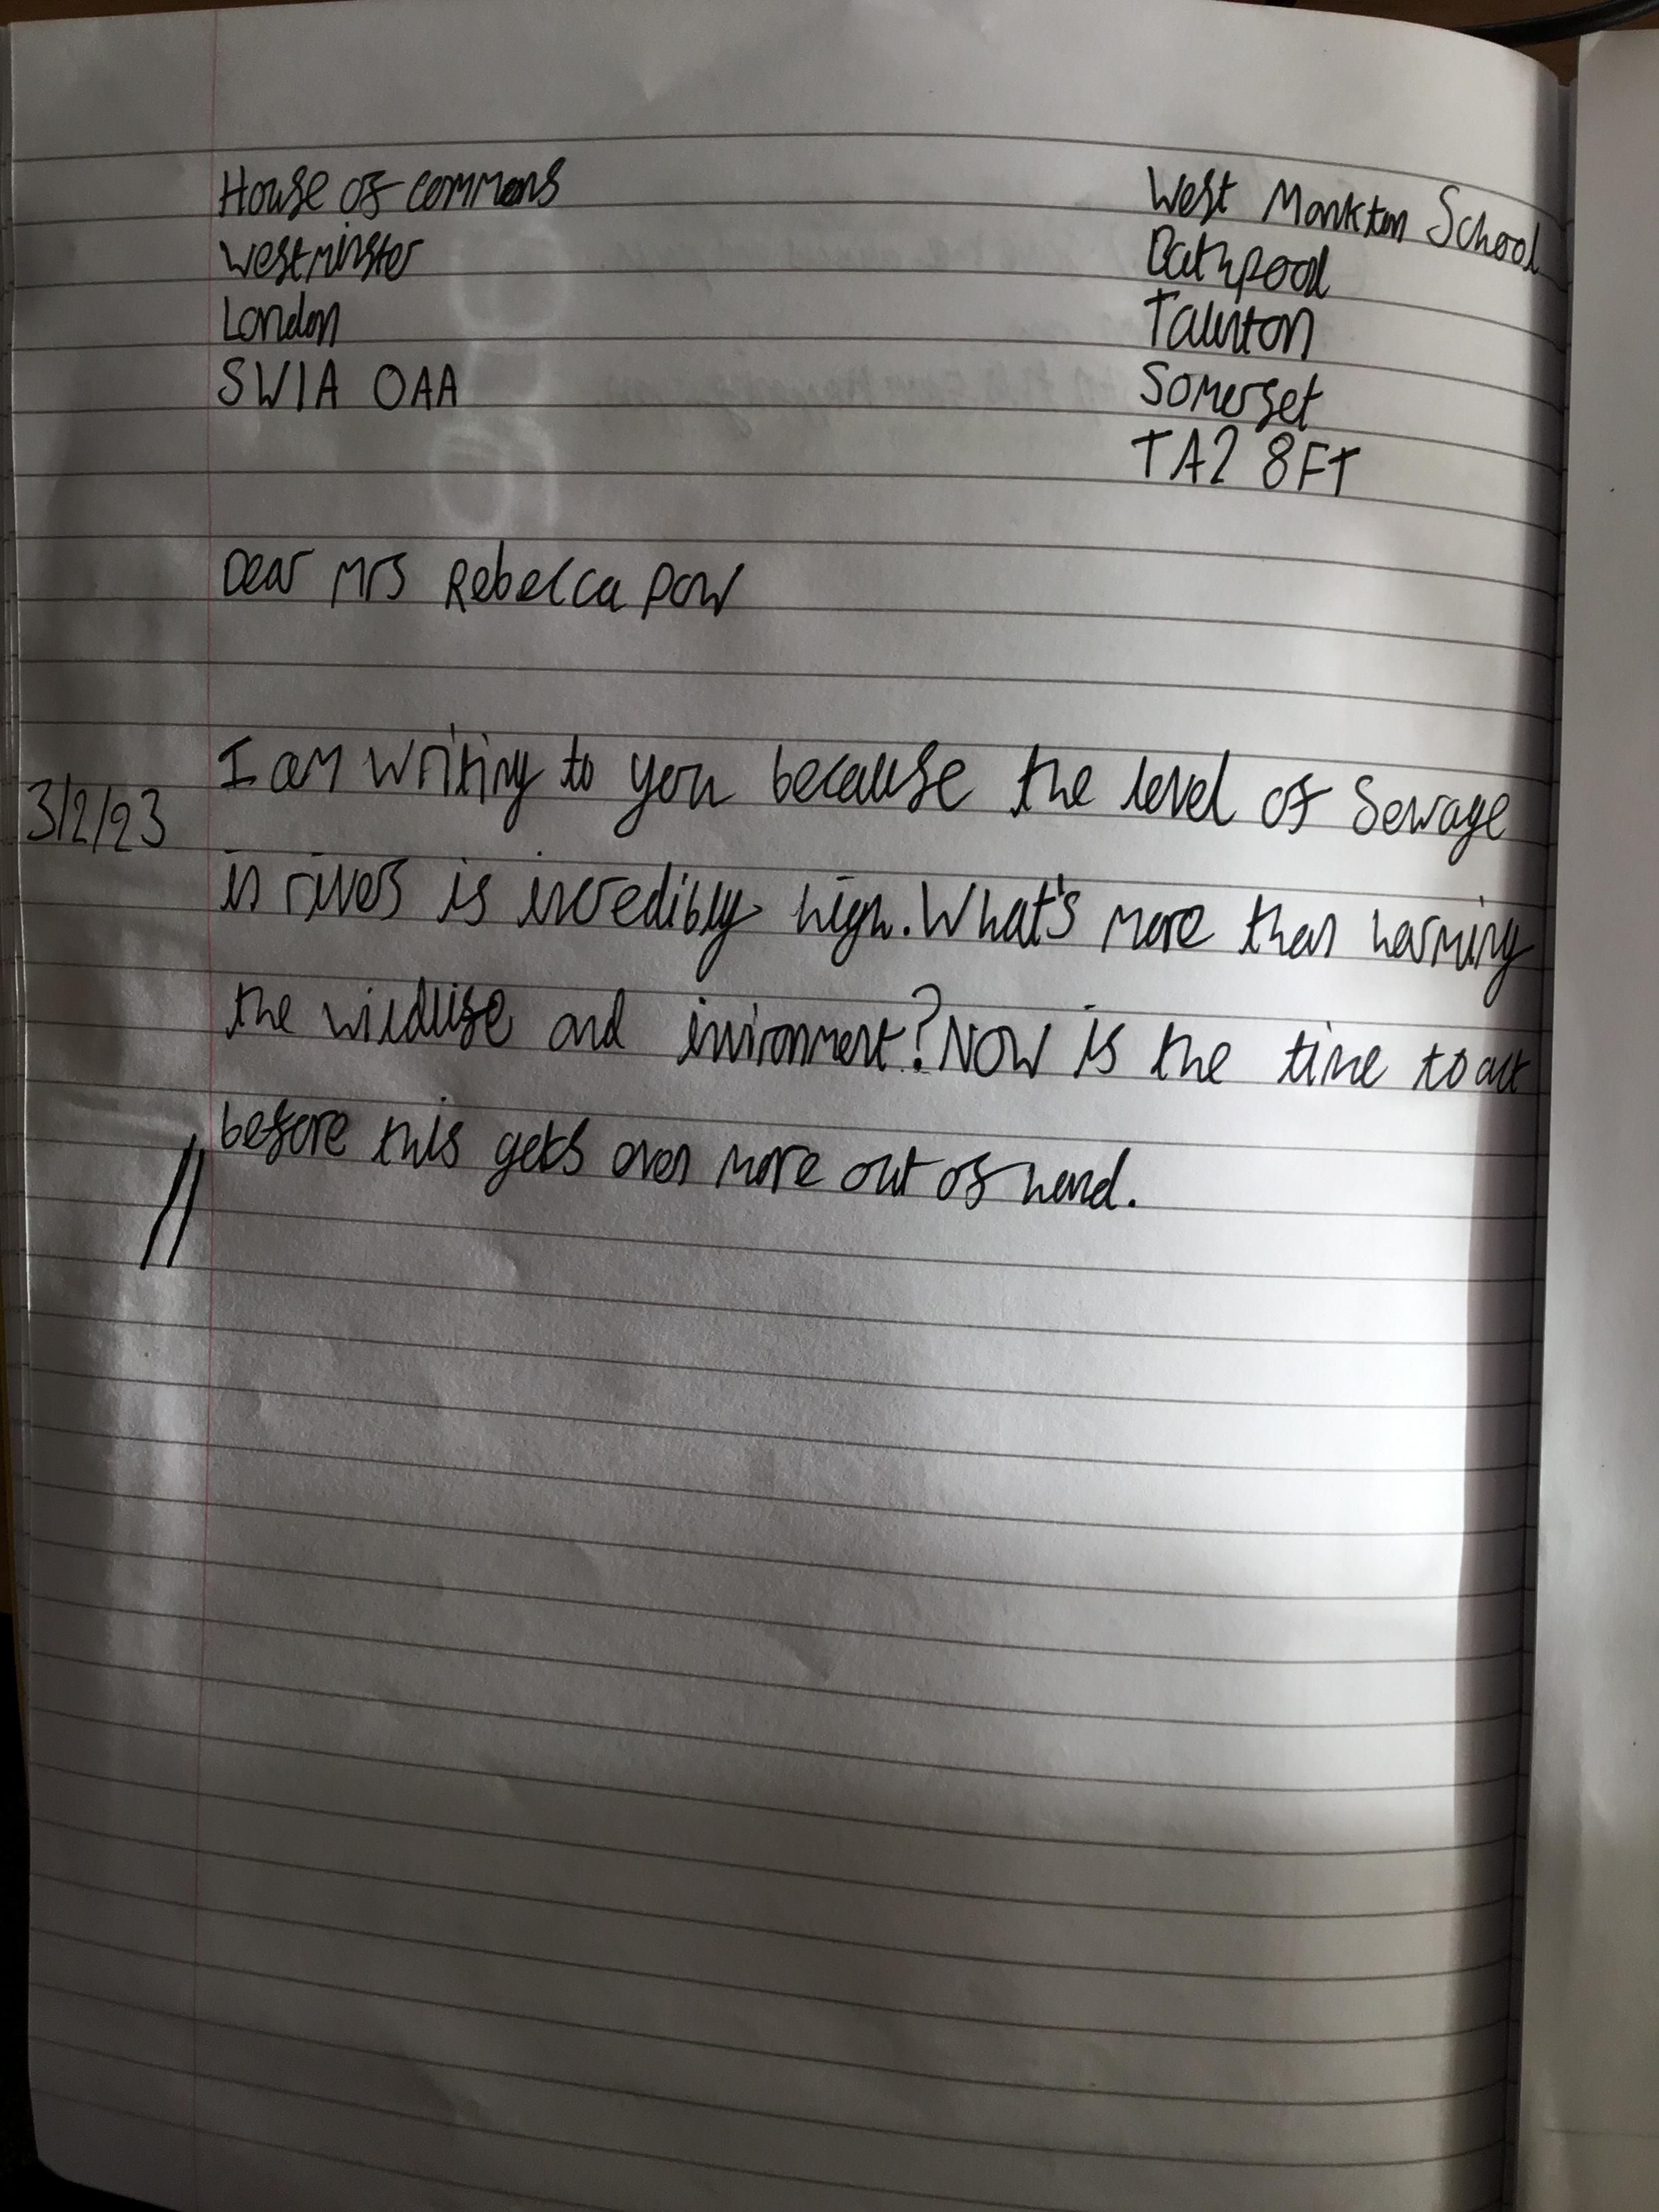 House of commons
Westminster
London
SW1A OAA
West Monkton School
Bathpool
Taunton
Somerset
TA2 8FT
Dear Mrs Rebecca Pow
I am writing to you because the level of Sewage
3/2/23
in rivers is incredibly high. What's more than harming
the wildlife and invironment? Now is the time to act
before this gets even more out of hand.